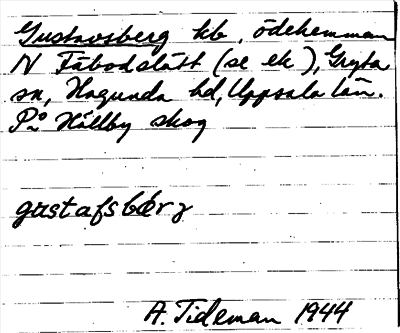 Gustavsberg kb, ödehemman
N Fäbodslätt (se ek), Gryta
sn, Hagunda hd, Uppsala län.
På Hällby skog
gustafsbærj
A. Tideman 1944